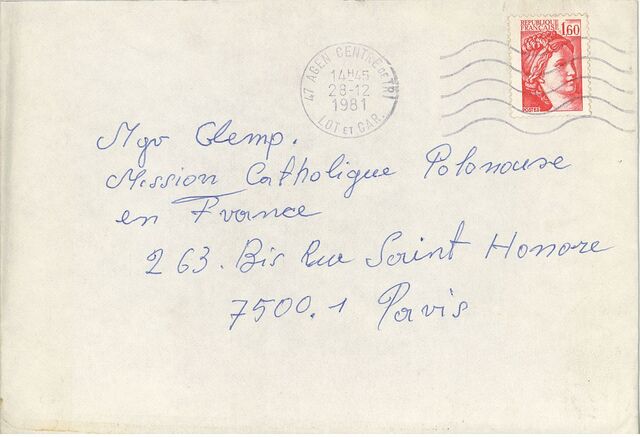 REPUBLIQUE
FRANCAISE
1,60
47 AGEN CENTRE DE TRI
14H45
28-12
1981
LOT ET GAR.
Mgr Glemp.
Mission Catholique Polonaise
en France
263. Bis Rue Saint Honore
7500.1 Paris